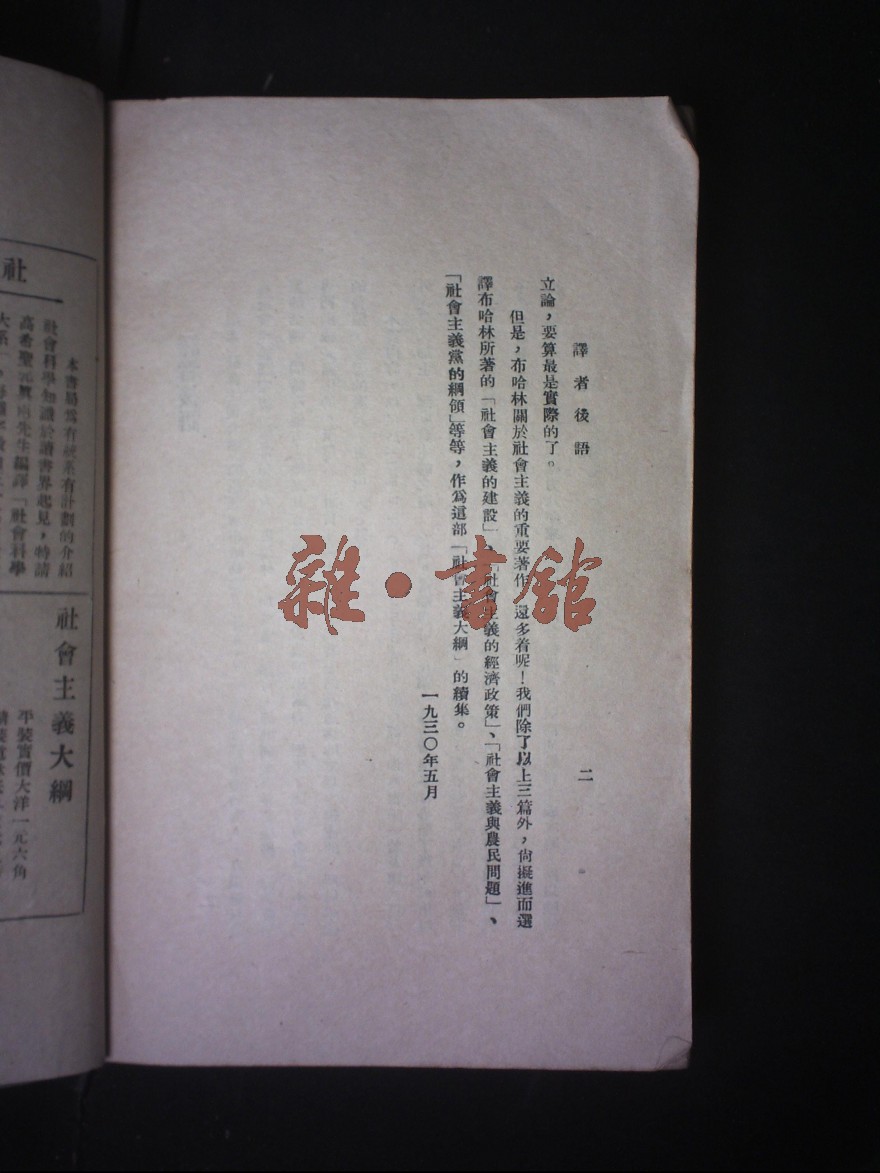 譯者後語
二
立論，要算最是實際的了。
但是，布哈林關於社會主義的重要著作，還多着呢！我們除了以上三篇外，尙擬進而選
譯布哈林所著的「社會主義的建設」、「社會主義的經濟政策」、「社會主義與農民問題」、
「社會主義黨的綱領」等等，作爲這部「社會主義大綱」的續集。
一九三〇年五月
雜·書館
社
本書局爲有統系有計劃的介紹
社會科學知識於讀書界起見，特請
先生編譯「社會科學
大系」
社會主義大綱
平裝實價大洋一元六角